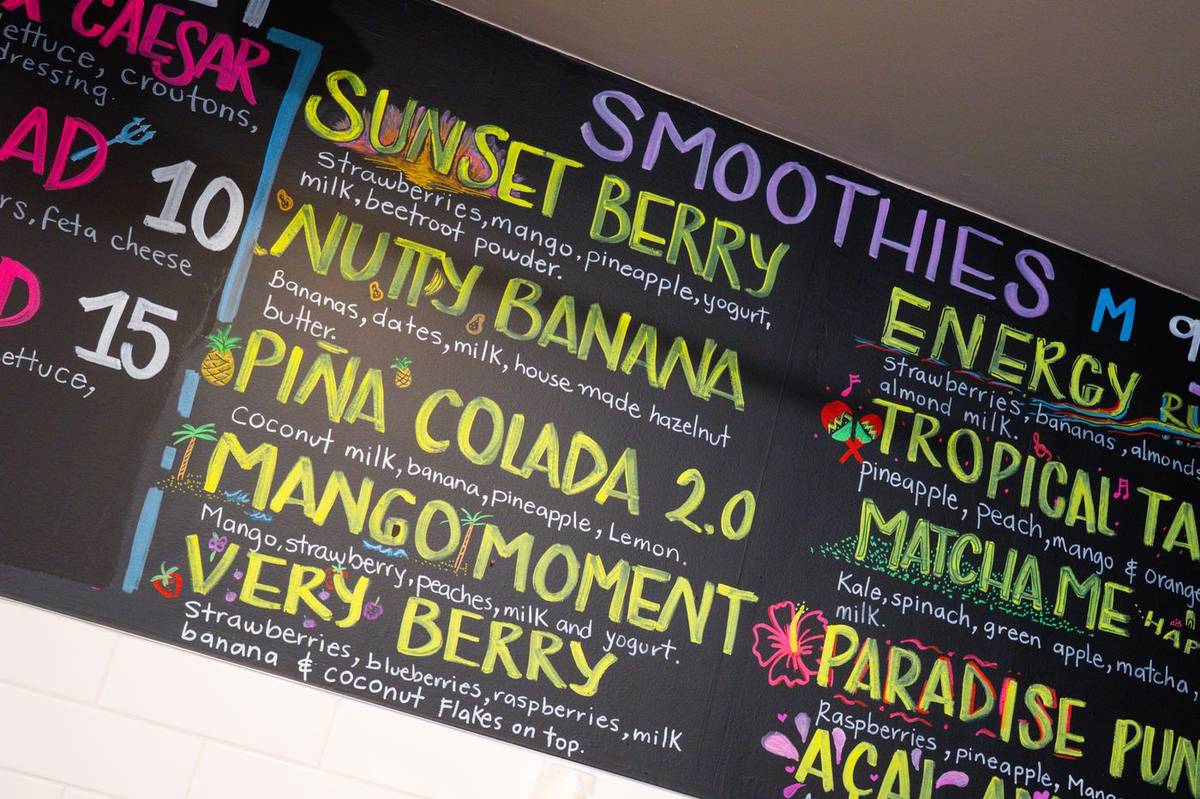 CAESAR
lettuce, croutons,
dressing.
10
feta cheese
15
lettuce,
SMOOTHIES M 9
SUNSET BERRY
strawberries, mango, pineapple, yogurt,
milk, beetroot powder.
NUTTY BANANA
Bananas, dates, milk, house made hazelnut
butter.
PIÑA COLADA 2.0
Coconut milk, banana, pineapple, Lemon.
MANGO MOMENT
Mango, strawberry, peaches, milk and yogurt.
VERY BERRY
Strawberries, blueberries, raspberries, milk
banana & coconut Flakes on top.
ENERGY
Strawberries, bananas, almond
almond milk.
TROPICAL TA
Pineapple, peach, mango & Orange
MATCHA ME HAP
Kale, spinach, green apple, matcha,
milk.
PARADISE PUN
Raspberries, pineapple, Mang
AÇAI